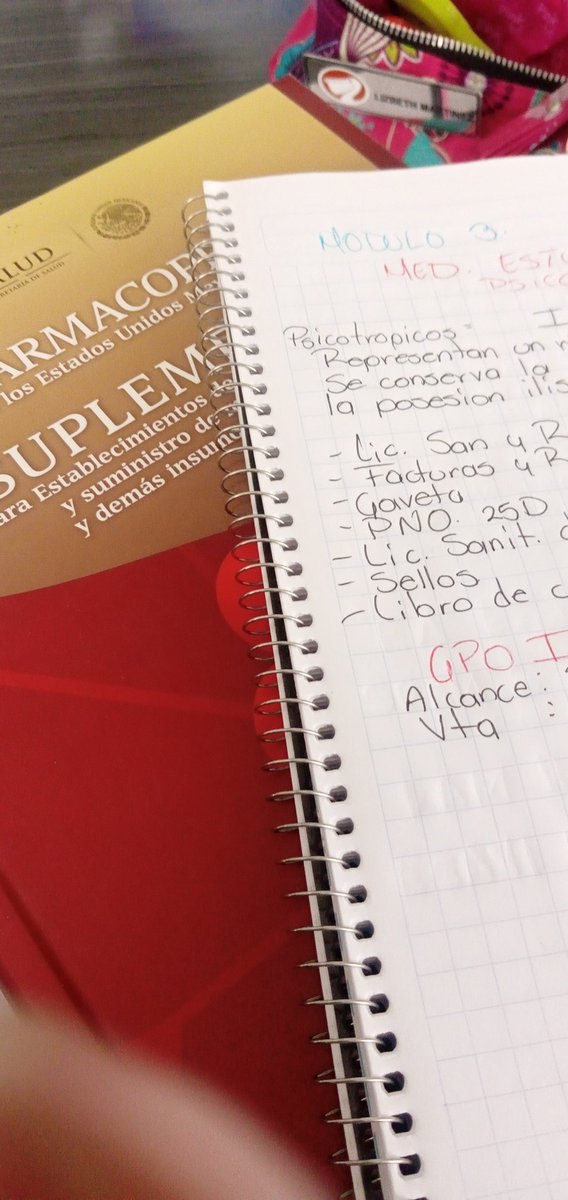 LIZBETH MARTINEZ
SALUD
SECRETARÍA DE SALUD
FARMACOPE
los Estados Unidos M
SUPLEM
para Establecimientos de
y suministro de
y demás insumo
MODULO 3.
MED. ESTU
PSICO
I
Psicotropicos=
Representan un
Se conserva la
la posesion ilis
- Lic. San y R
- Facturas y R
- Gaveta
- PNO. 25D
- Lic. Sanit.
- Sellos
- Libro de c
GPO I
Alcance:
Vta :